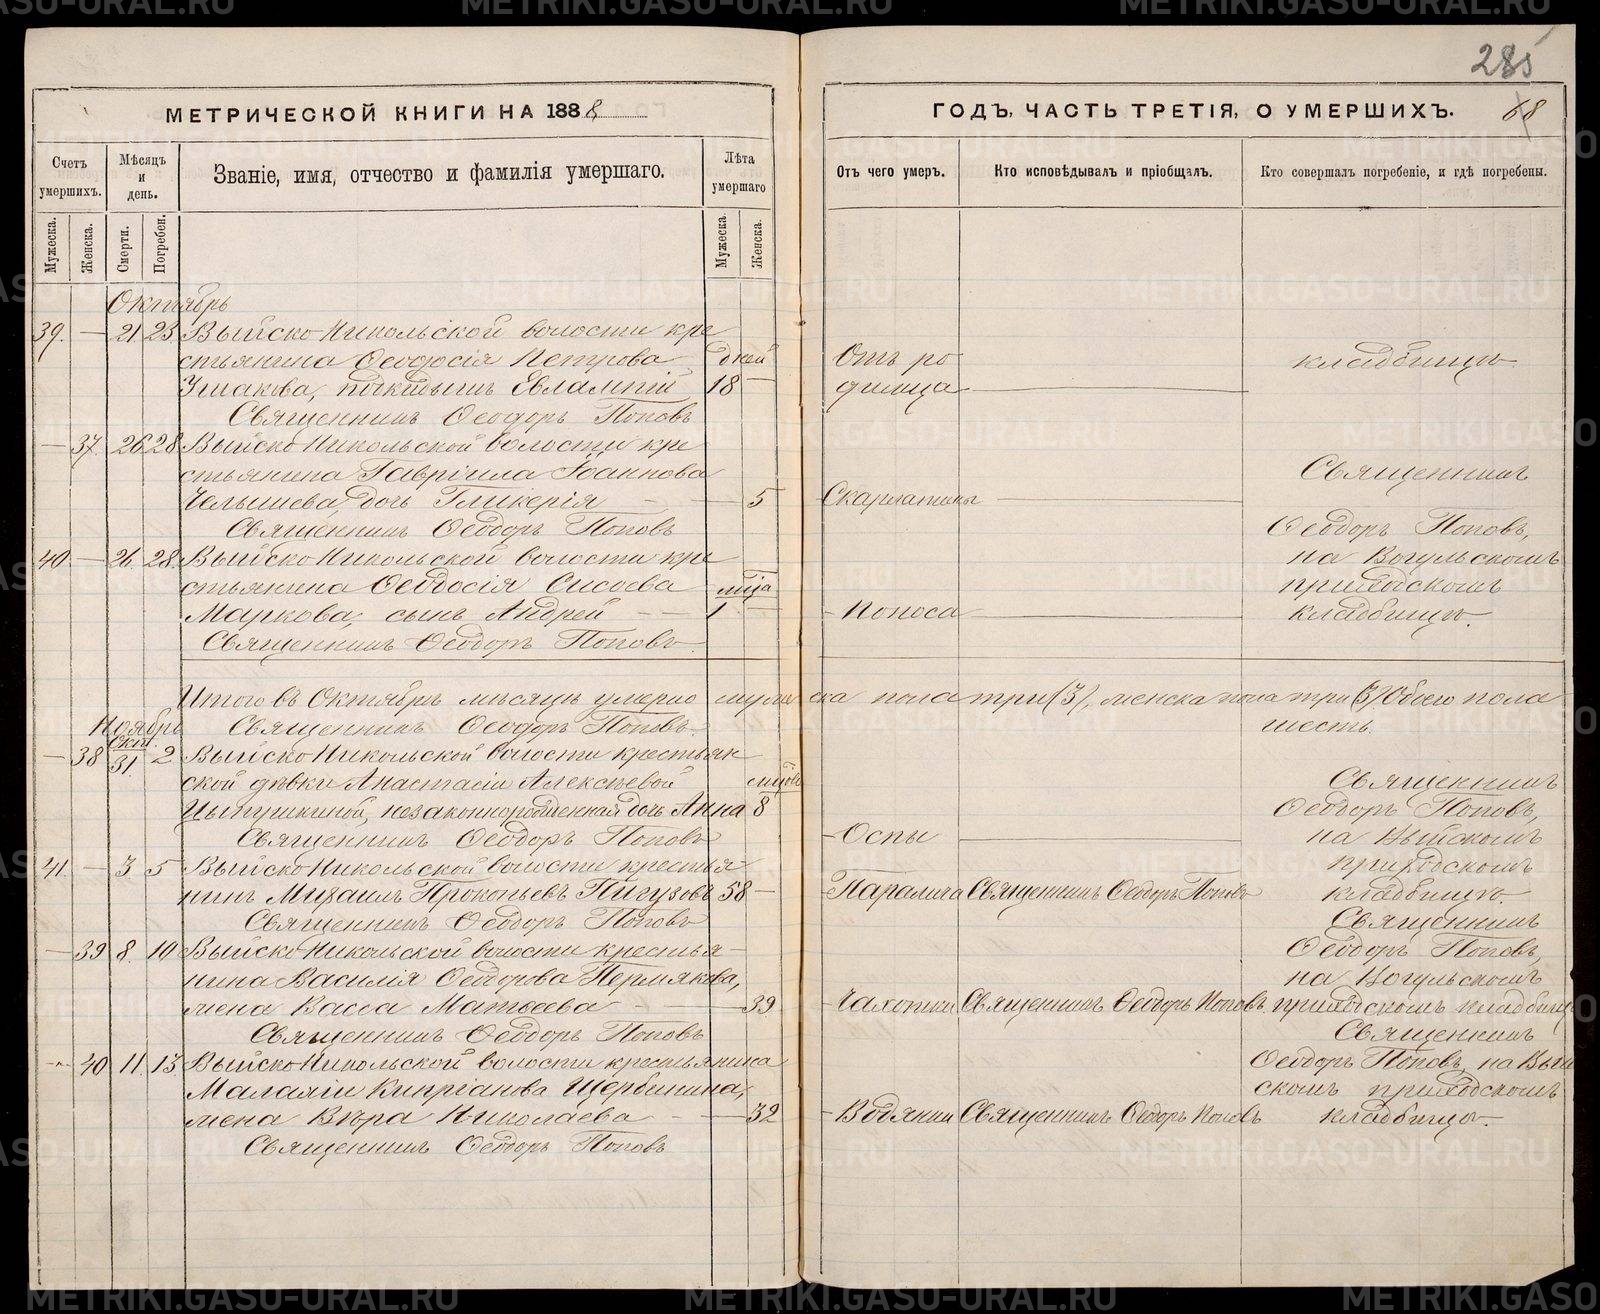 285
МЕТРИЧЕСКОЙ КНИГИ НА 1888
ГОДЪ, ЧАСТЬ ТРЕТІЯ, О УМЕРШИХЪ.
68
Счетъ умершихъ.
Мѣсяцъ и день.
Званіе, имя, отчество и фамилія умершаго.
Лѣта умершаго
Отъ чего умеръ.
Кто исповѣдывалъ и пріобщалъ.
Кто совершалъ погребеніе, и гдѣ погребены.
Мужеска.
Женска.
Смерти.
Погребен.
Мужеска
Женска.
Октябрь
39. — 21 23 Выйско-Никольской волости кре
стьянина Ѳеодосія Петрова дней Отъ ро кладбищѣ
Ушакова, Евлампій 18 — димца
Священникъ Ѳеодоръ Поповъ
— 37. 26 28 Выйско Никольской волости кре
стьянина Гавріила Іоаннова Священникъ
Челышева дочь Гликерія — 5 Скарлатины
Священникъ Ѳеодоръ Поповъ Ѳеодоръ Поповъ,
40 — 26. 28. Выйско Никольской волости кре на Вогульскомъ
стьянина Ѳеодосія Сисоева мѣца приходскомъ
Маркова, сынъ Андрей — 1 — Поноса кладбищѣ.
Священникъ Ѳеодоръ Поповъ
Итого въ Октябрѣ мѣсяцѣ умерло мужеска пола три (3), женска пола три (3) Обоего пола
Ноябрь Священникъ Ѳеодоръ Поповъ. шесть.
Окт.
— 38 31 2 Выйско Никольской волости крестьян
ской дѣвки Анастасіи Алексѣевой Священникъ
Цыпушкиной, незаконнорожденная дочь Анна 8 Ѳеодоръ Поповъ,
Священникъ Ѳеодоръ Поповъ Оспы на Выйскомъ
41. — 3 5 Выйско Никольской волости крестья приходскомъ
нинъ Михаилъ Прокопьевъ Пигузовъ 58 — Паралича Священникъ Ѳеодоръ Поповъ кладбищѣ.
Священникъ Ѳеодоръ Поповъ Священникъ
— 39 8. 10 Выйско Никольской волости крестья Ѳеодоръ Поповъ,
нина Василія Ѳеодорова Пермякова, на Вогульскомъ
жена Васса Матѳеева — 39 Чахотки Священникъ Ѳеодоръ Поповъ. приходскомъ кладбищѣ
Священникъ Ѳеодоръ Поповъ Священникъ
— 40 11. 13. Выйско Никольской волости крестьянина Ѳеодоръ Поповъ, на Вый
Малахіи Кипріанова Щербинина, скомъ приходскомъ
жена Вѣра Николаева — 32 Водянки Священникъ Ѳеодоръ Поповъ кладбищѣ.
Священникъ Ѳеодоръ Поповъ
METRIKI.GASO-URAL.RU